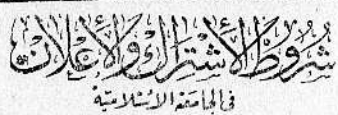 شُرُوطُ الأشْتِرَاكِ وَالأعْلَانِ
في الجامعة الاسلامية